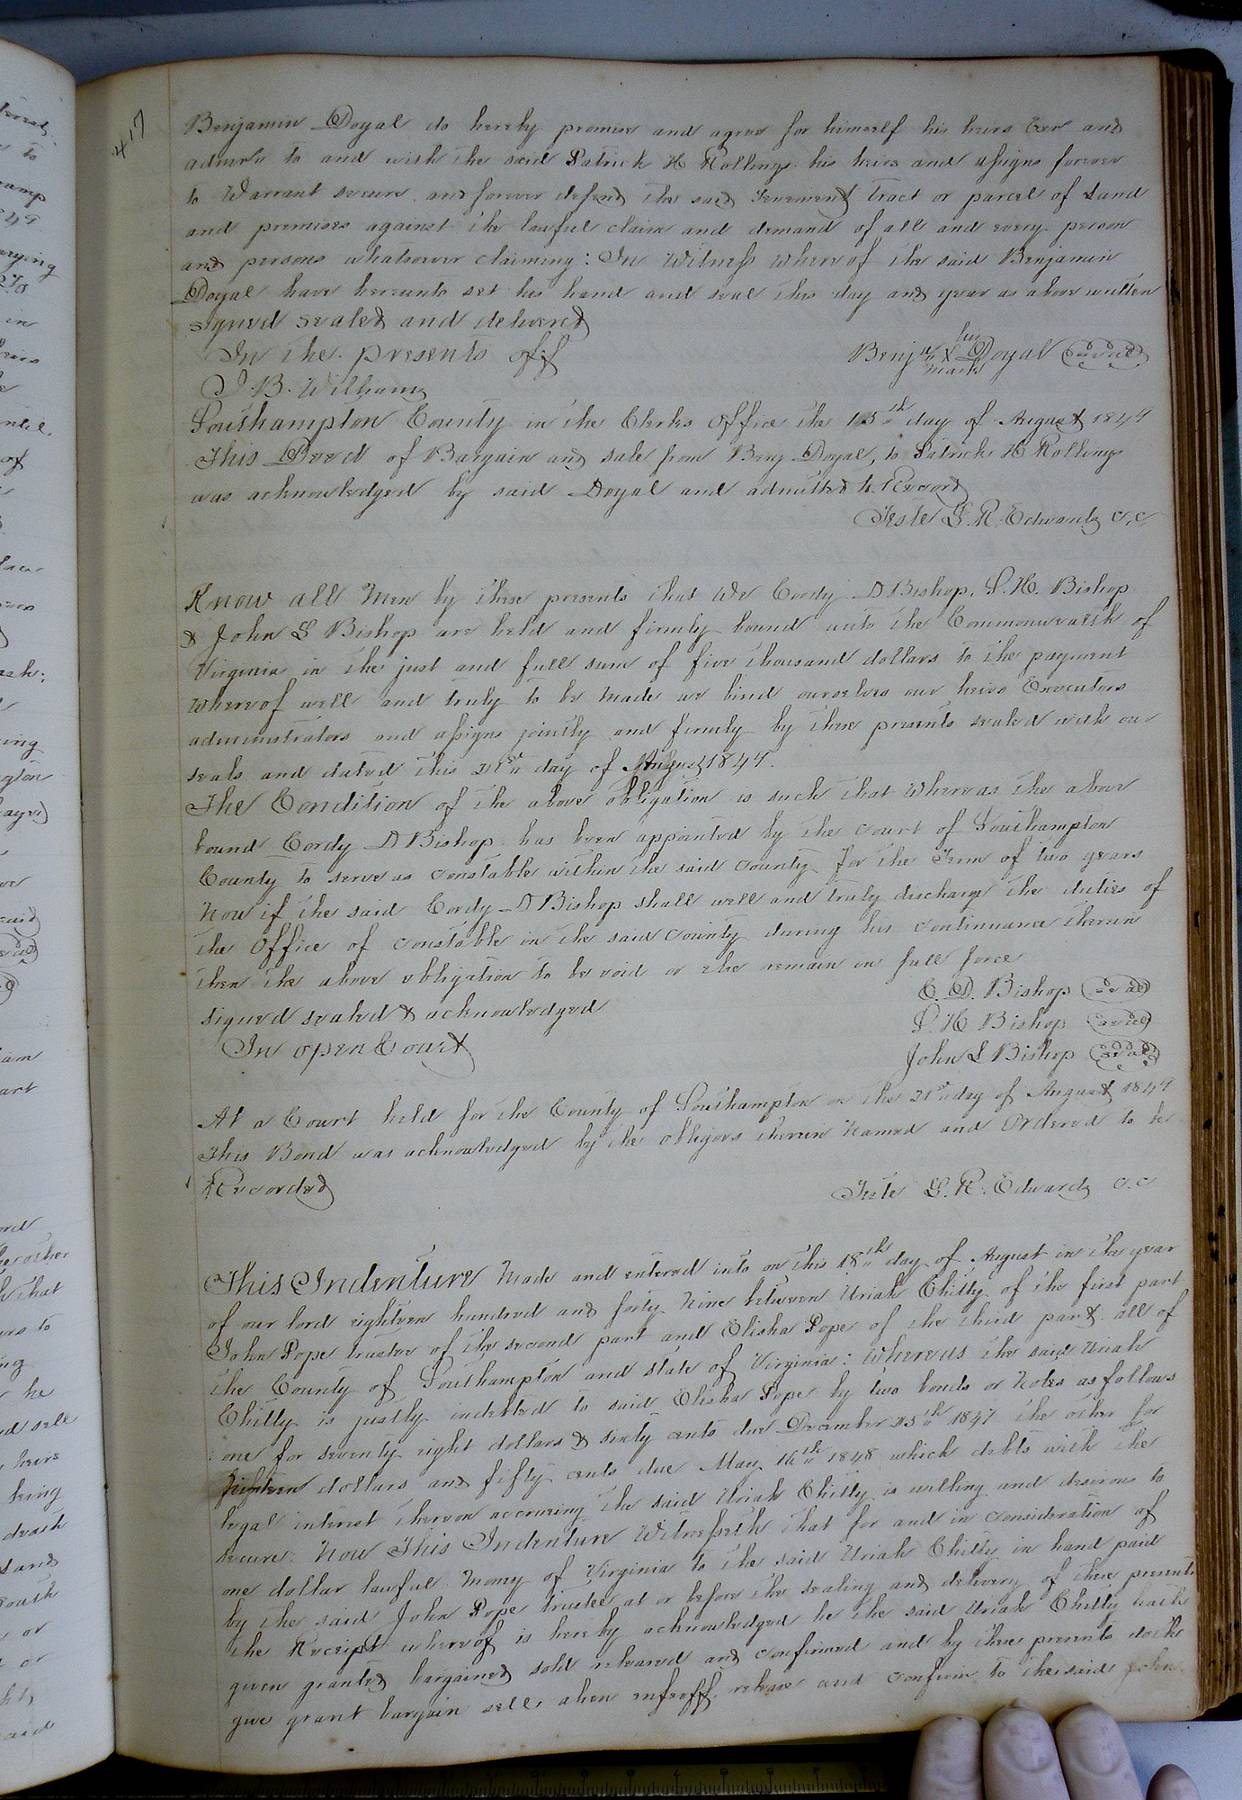 417
Benjamin Doyal do hereby promise and agree for himself his heirs Exer and
admrs to and with the said Patrick H Rollings his heirs and assigns forever
to Warrant secure and forever defend the said Tenement tract or parcel of Land
and premises against the lawful claim and demand of all and every person
and persons whatsoever claiming: In Witness whereof the said Benjamin
Doyal have hereunto set his hand and seal this day and year as above written
signed sealed and delivered
In the presents off
his
Benja X Doyal (seal)
mark
J. B. Williams
Southampton County in the Clerks Office the 15th day of August 1849
This Deed of Bargain and sale from Benj Doyal, to Patrick H Rollings
was acknowledged by said Doyal and admitted to Record
Teste L. R. Edwards c.c.
Know all Men by these presents that We Cordy D Bishop, P. H. Bishop
& John L Bishop are held and firmly bound unto the Commonwealth of
Virginia in the just and full sum of five thousand dollars to the payment
whereof well and truly to be made we bind ourselves our heirs Executors
administrators and assigns jointly and firmly by these presents sealed with our
seals and dated this 21st day of August 1849.
The Condition of the above obligation is such that Whereas the above
bound Cordy D Bishop has been appointed by the court of Southampton
County to serve as constable within the said county for the Term of two years
Now if the said Cordy D Bishop shall well and truly discharge the duties of
the Office of constable in the said county during his continuance therein
then the above obligation to be void or else remain in full force
C. D. Bishop (seal)
signed sealed & acknowledged
P H Bishop (seal)
In open Court
John L Bishop (seal)
At a Court held for the County of Southampton on the 21st day of August 1849
This Bond was acknowledged by the obligors therein Named and Ordered to be
Recorded
Teste L. R. Edwards c.c
This Indenture Made and entered into on this 18th day of August in the year
of our lord eighteen hundred and forty Nine between Uriah Chitty of the first part
John Pope trustee of the second part and Elisha Pope of the third part all of
the County of Southampton and state of Virginia: Whereas the said Uriah
Chitty is justly indebted to said Elisha Pope by two bonds or Notes as follows
one for seventy eight dollars & sixty cents due December 25th 1847 the other for
dollars and fifty cents due May 16th 1848 which debts with the
legal interest thereon accruing the said Uriah Chitty is willing and desirous to
secure. Now This Indenture Witnesseth that for and in consideration of
one dollar lawful money of Virginia to the said Uriah Chitty in hand paid
by the said John Pope trustee at or before the sealing and delivery of these presents
the Receipt whereof is hereby acknowledged he the said Uriah Chitty hath
given granted bargained sold released and confirmed and by these presents doth
give grant bargain sell alien enfeoff release and confirm to the said John